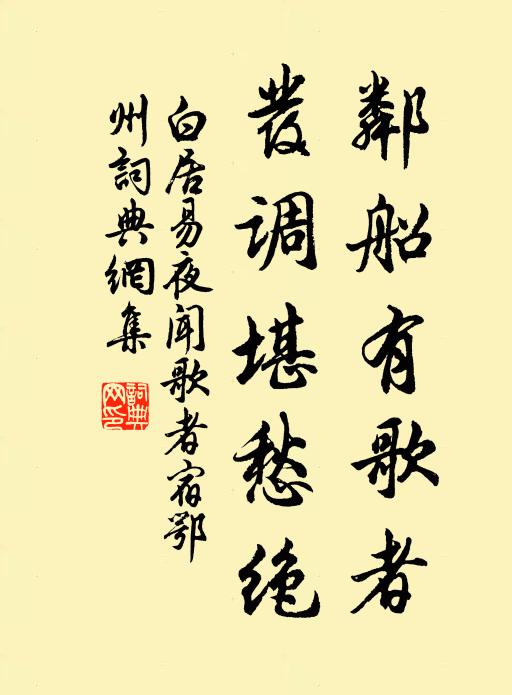 鄰船有歌者
發調堪愁絶
白居易夜聞歌者宿鄂
州詞典網集
詞典
网印